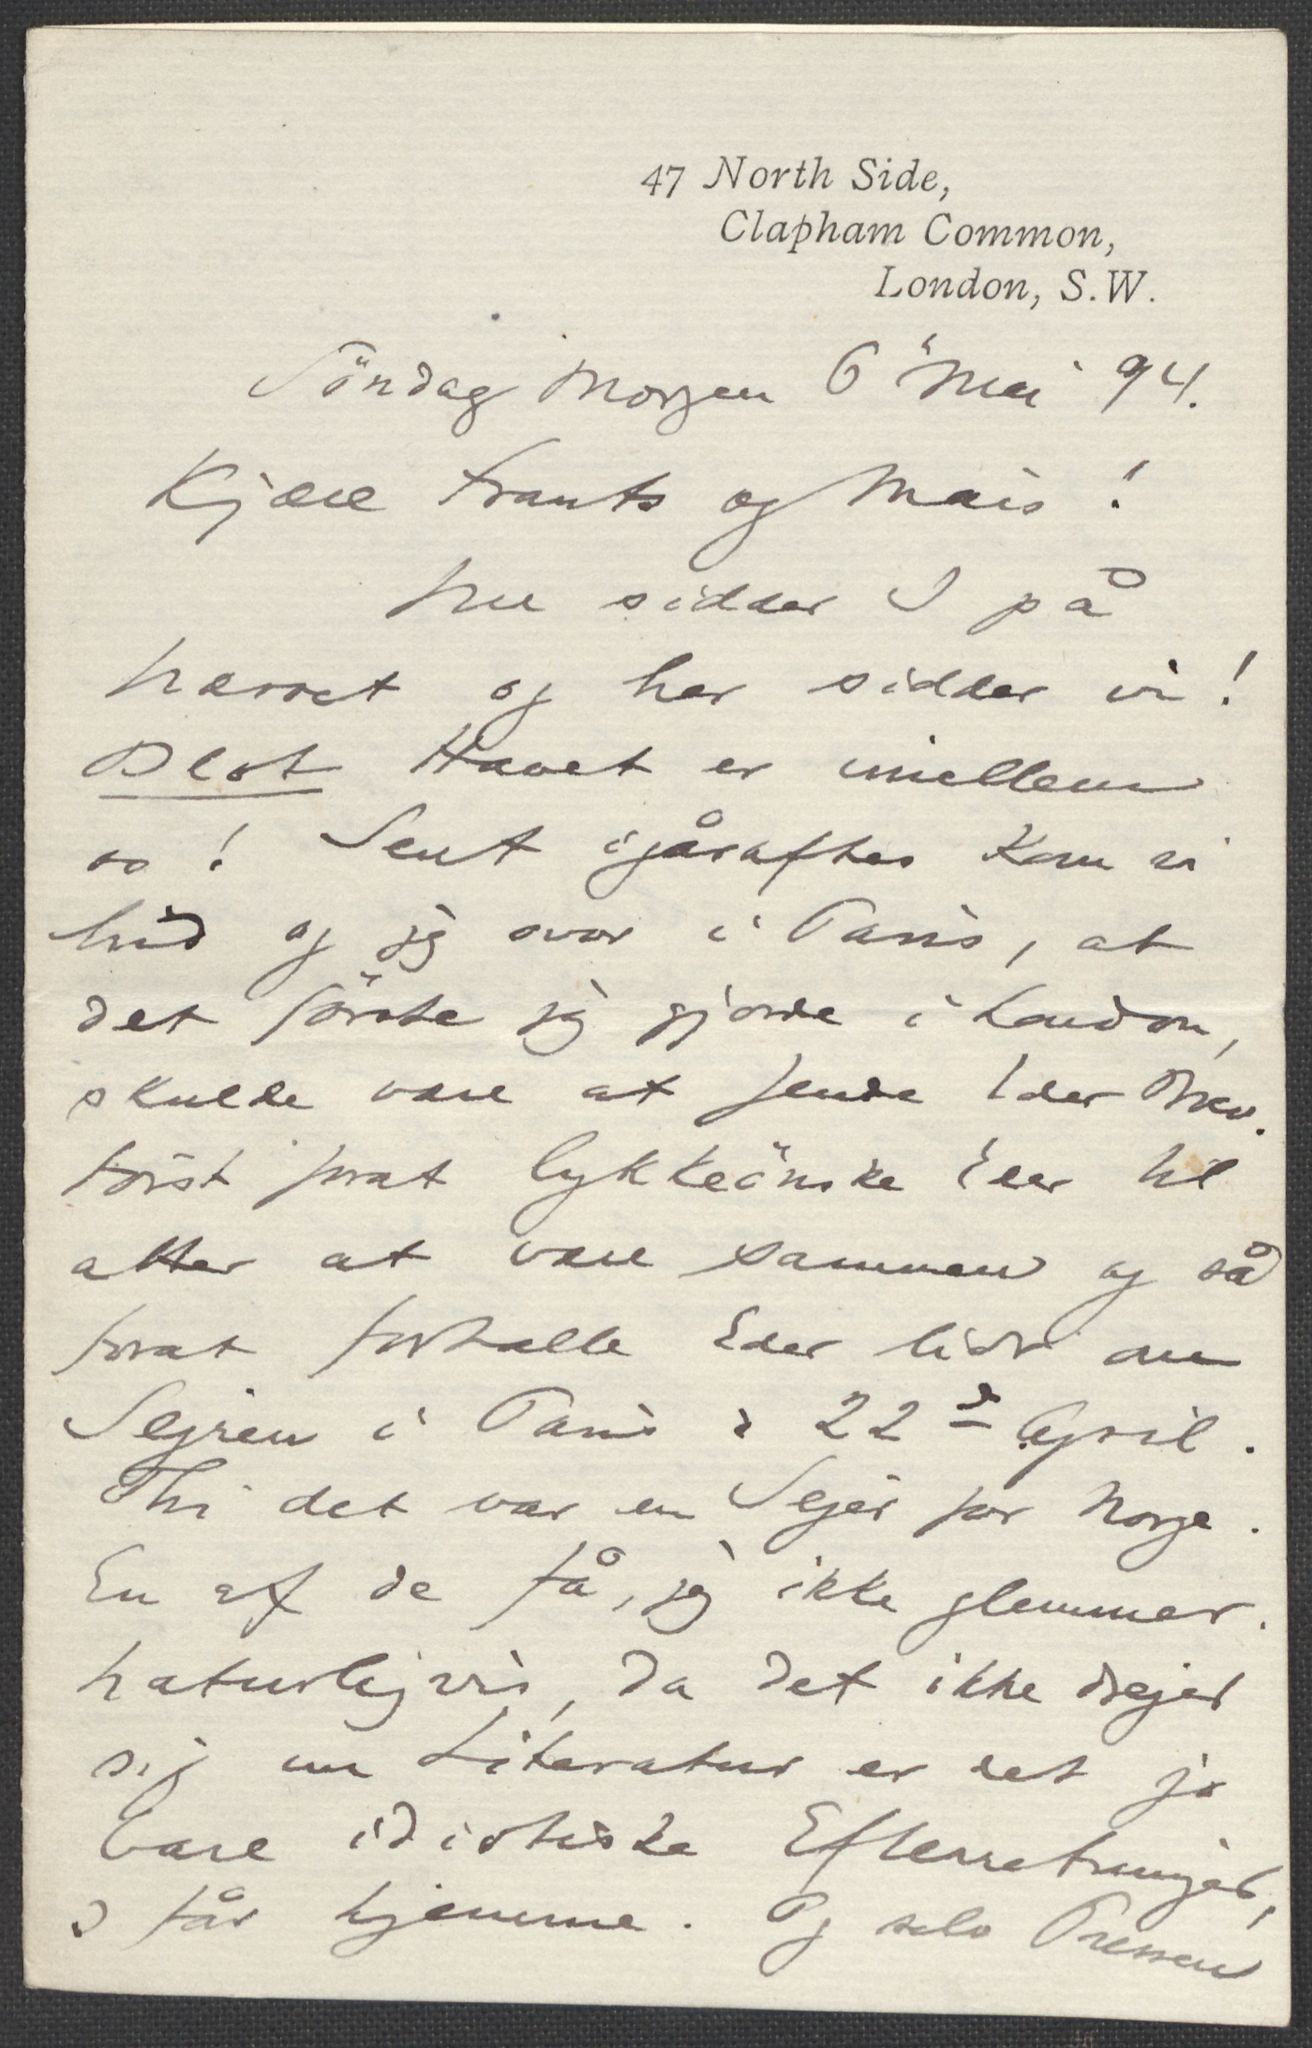 47 North Side,
Clapham Common,
London, S.W.
Söndag Morgen 6 Mai 94.
Kjære Frants og Mais!
Nu sidder I på
Næsset og her sidder vi!
Blot Havet er imellem
os! Sent igåraftes kom vi
hid og jeg svor i Paris, at
det förste jeg gjorde i London,
skulde være at sende Eder Brev.
Först forat lykkeönske Eder til
atter at være sammen og så
forat fortælle Eder lidt om
Sejren i Paris d 22d April.
Thi det var en Sejer for Norge.
En af de få, jeg ikke glemmer.
Naturligvis, da det ikke drejer
sig om Literatur er det jo
bare idiotiske Efterretninger,
I får hjemme. Og selv Pressen